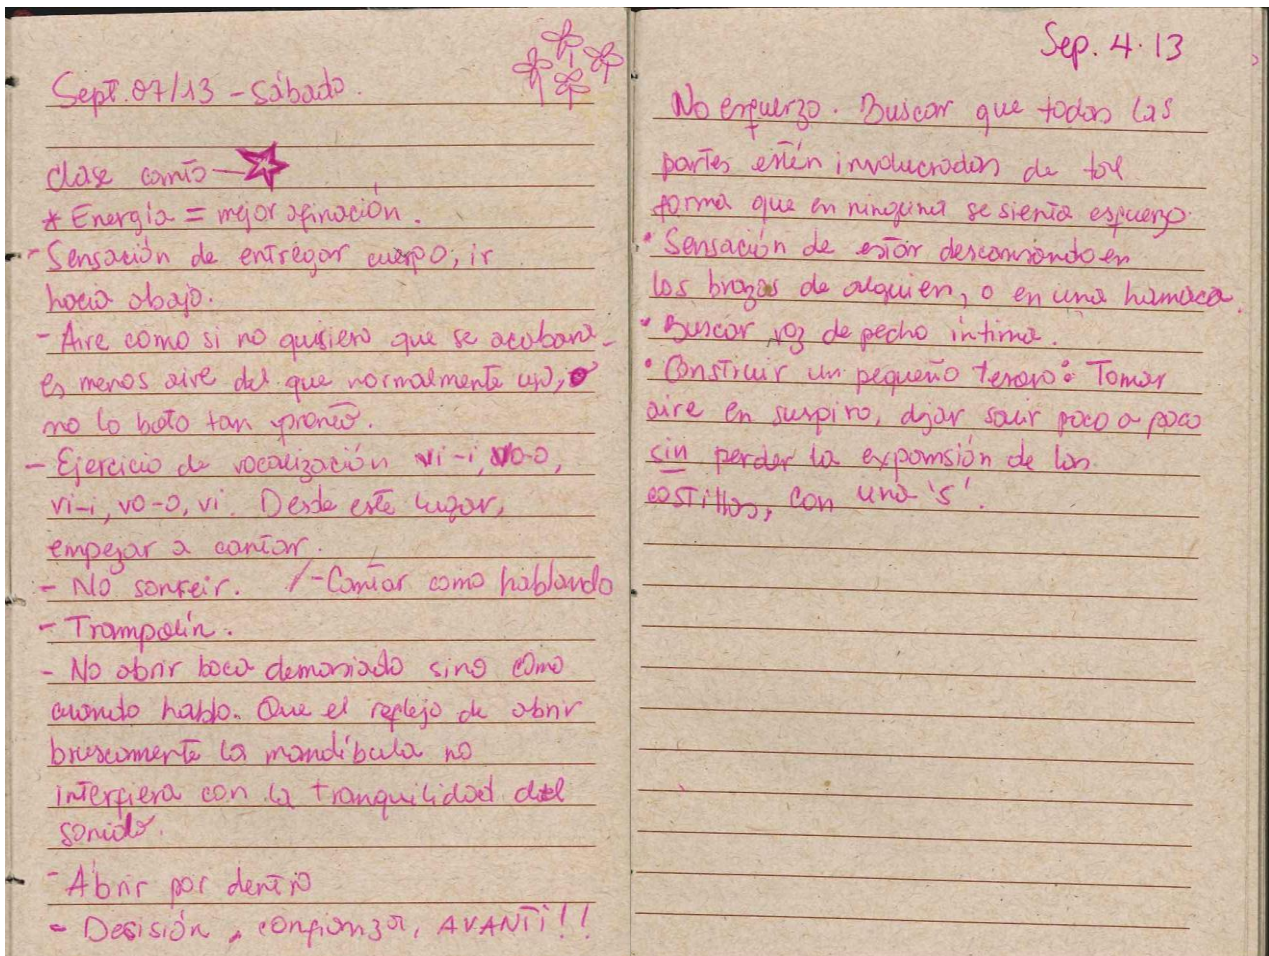 Sept. 07/13 - Sábado.
clase canto - 
* Energía = mejor afinación.
- Sensación de entregar cuerpo, ir
hacia abajo.
- Aire como si no quisiera que se acabara -
es menos aire del que normalmente uso,
no lo boto tan pronto.
- Ejercicio de vocalización vi-i, vo-o,
vi-i, vo-o, vi. Desde este lugar,
empezar a cantar.
- No sonreir. /-Cantar como hablando
- Trampolín.
- No abrir boca demasiado sino como
cuando hablo. Que el reflejo de abrir
bruscamente la mandíbula no
interfiera con la tranquilidad del
sonido.
- Abrir por dentro
- Desisión, confianza, AVANTI!!
Sep. 4. 13
No esfuerzo. Buscar que todas las
partes estén involucradas de tal
forma que en ninguna se sienta esfuerzo.
• Sensación de estar descansando en
los brazos de alguien, o en una hamaca.
• Buscar voz de pecho íntima.
• Construir un pequeño tesoro: Tomar
aire en suspiro, dejar salir poco a poco
sin perder la expansión de las
costillas, con una 's'.